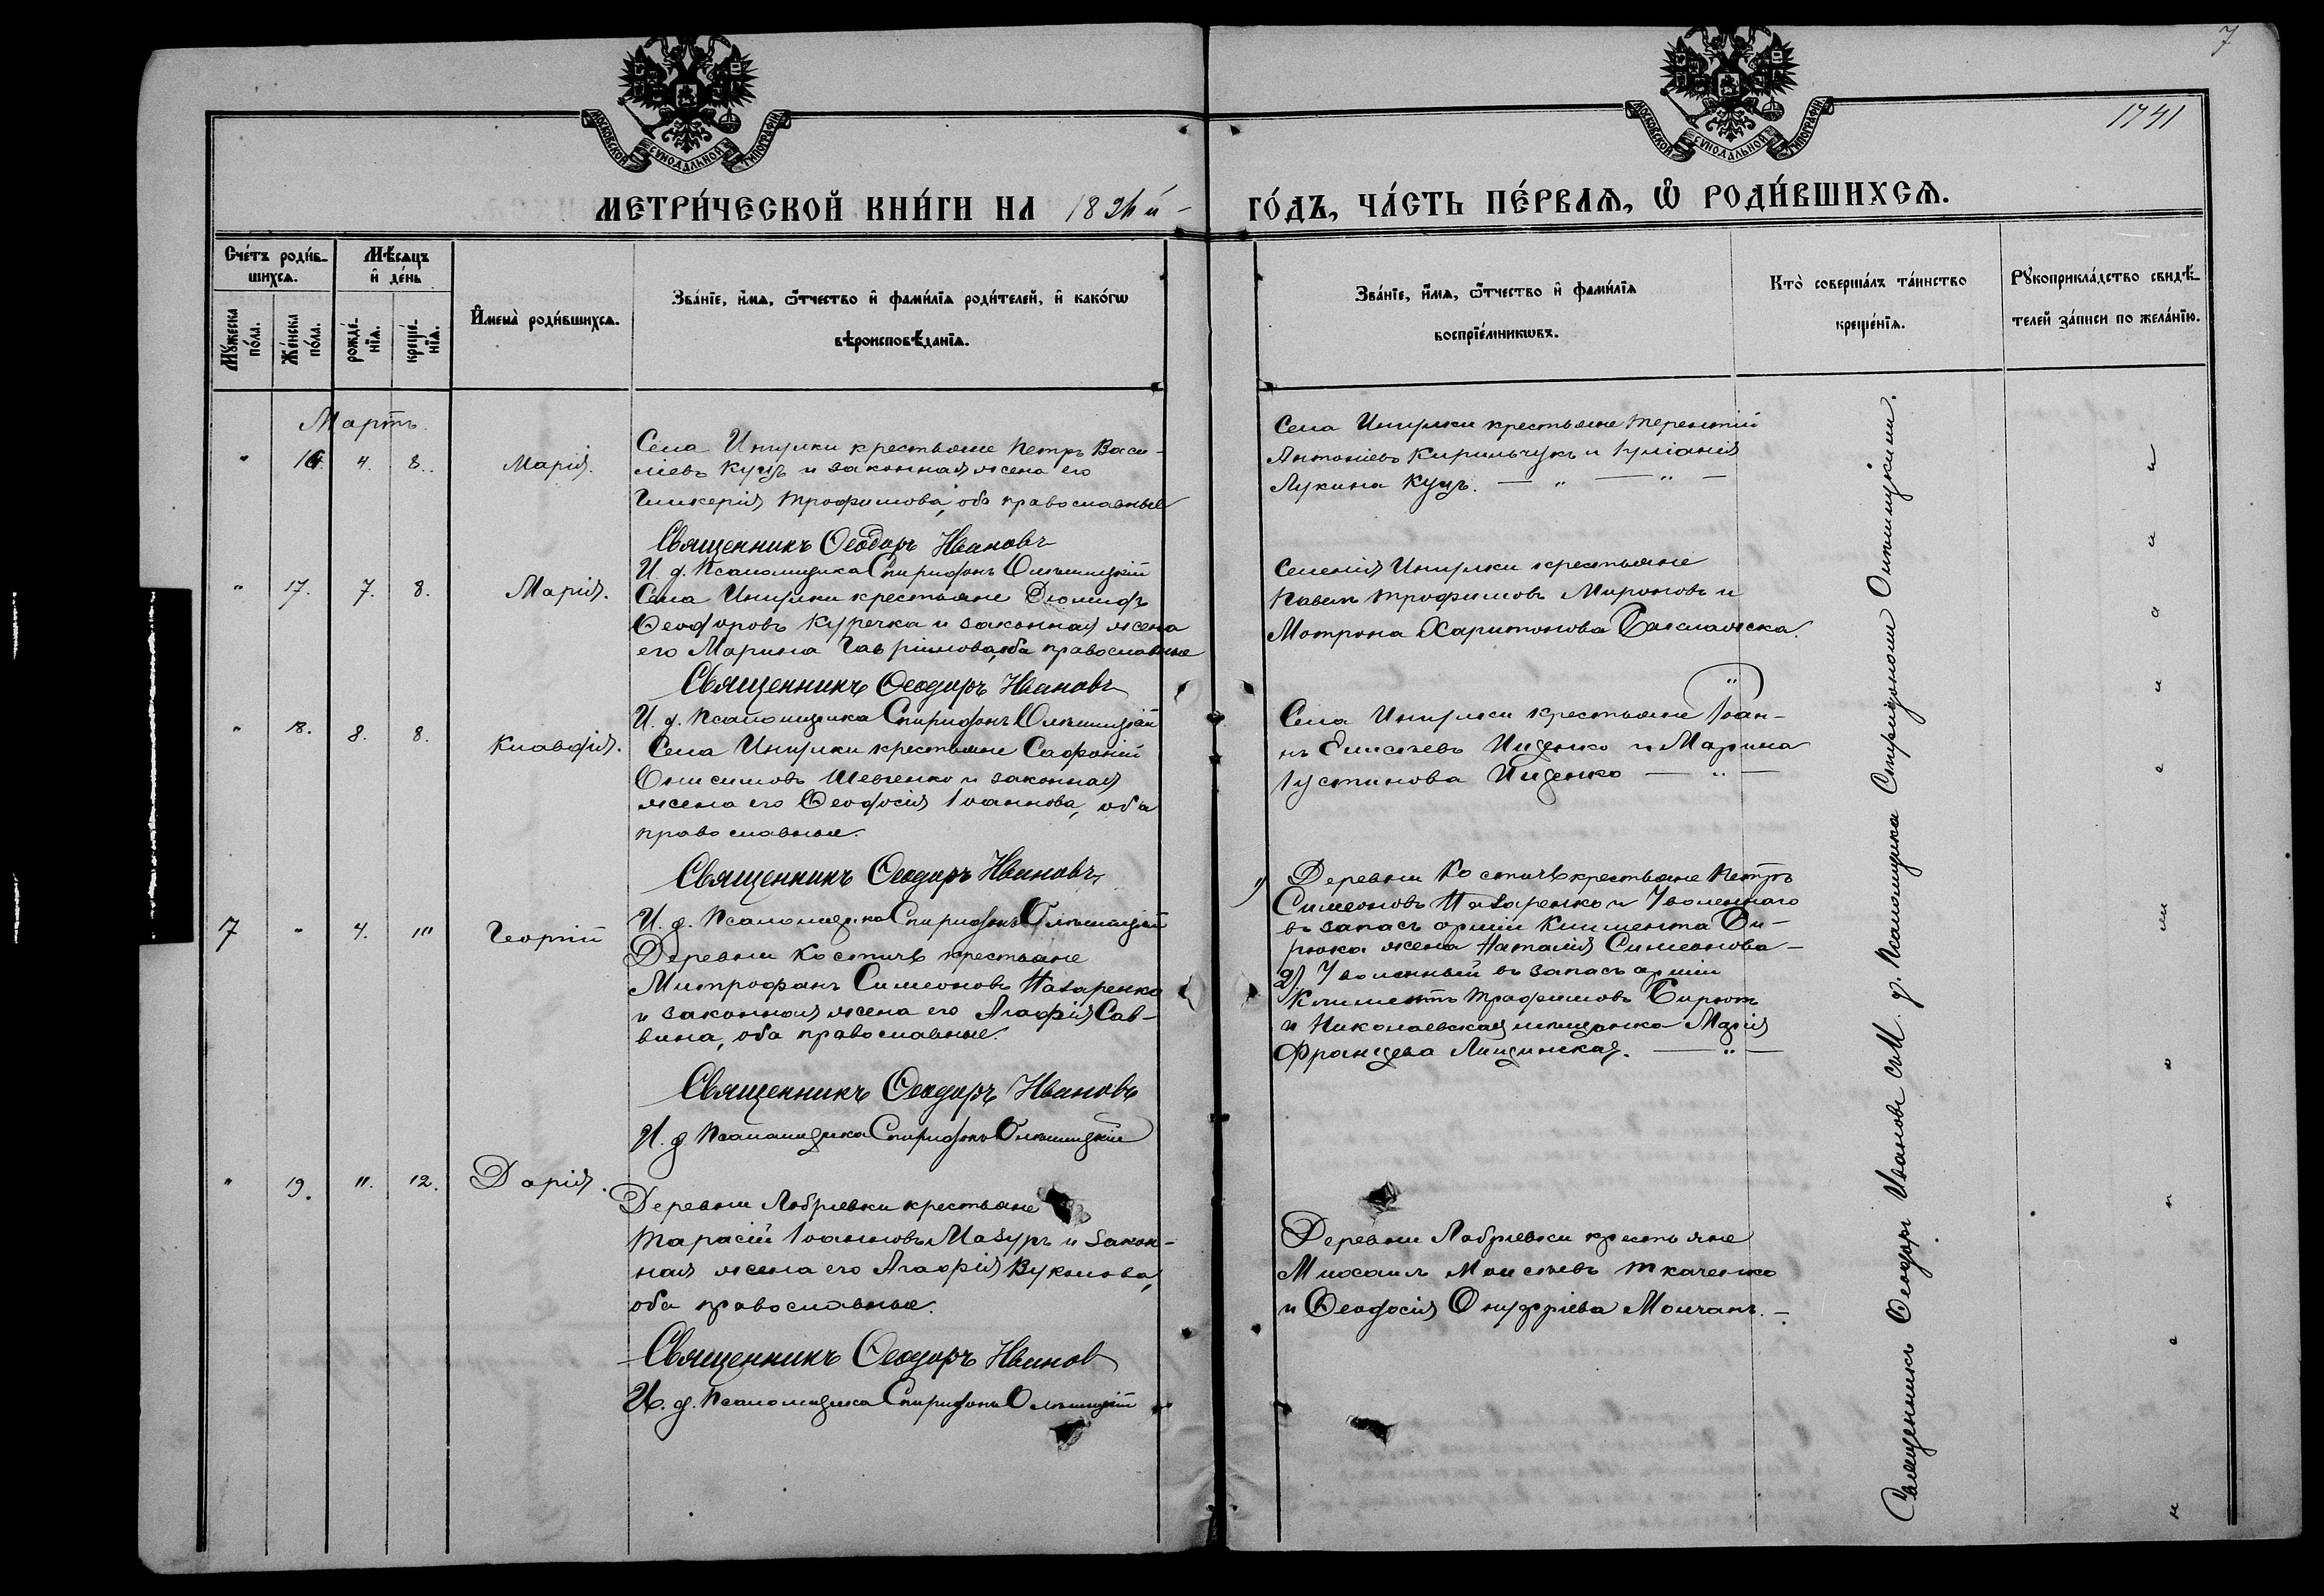 7
1741
МОСКОВСКОЙ СУНОДАЛЬНОЙ ТИПОГРАФІИ
МОСКОВСКОЙ СУНОДАЛЬНОЙ ТИПОГРАФІИ
МЕТРИ́ЧЕСКОЙ КНИ́ГИ НА 18
ГО́ДЪ, ЧА́СТЬ ПЕ́РВАѦ, Ѡ҆ РОДИ́ВШИХСѦ.
Сче́тъ роди́в-
шихсѧ.
Мѣ́сѧцъ
и҆ де́нь
Мꙋ́жеска по́ла.
Же́нска по́ла.
рожде́-нїѧ.
креще́-нїѧ.
И҆мена̀ роди́вшихсѧ.
Зва́нїе, и҆́мѧ, ѻ҆́тчество и҆ фами́лїѧ роди́телей, и҆ како́гѡ
вѣроисповѣ́данїѧ.
Зва́нїе, и҆́мѧ, ѻ҆́тчество и҆ фами́лїѧ
воспрїе́мникѡвъ.
Кто̀ соверша́лъ та́инство
креще́нїѧ.
Рꙋкоприкла́дство свидѣ́-
телей за́писи по жела́нїю.
Мартъ.
" 16 4. 8. Марія.
Села Ингулки крестьяне Петръ Васи-
ліевъ Куцъ и законная жена его
Гликерія Трофимова, оба православные
Священникъ Ѳеодоръ Ивановъ
И. д. Псаломщика Спиридонъ
Села Ингулки крестьяне Терентій
Антоніевъ Кирильчукъ и Іуліанія
Лукина Куцъ. — " — " —
" 17. 7. 8. Марія.
Села Ингулки крестьяне Діомидъ
Ѳеодоровъ Курочка и законная жена
его Марина Гавріилова, оба православные
Священникъ Ѳеодоръ Ивановъ
И. д. Псаломщика Спиридонъ
Селенія Ингулки крестьяне
Павелъ Трофимовъ Мироновъ и
Мотрона Харитонова
" 18. 8. 8. Клавдія.
Села Ингулки крестьяне Софоній
Онисимовъ Шевченко и законная
жена его Ѳеодосія Іоаннова, оба
православные.
Священникъ Ѳеодоръ Ивановъ
И. д. Псаломщика Спиридонъ
Села Ингулки крестьяне Іоан-
нъ Елисѣевъ Ищенко и Марина
Іустинова Ищенко — " —
7 " 4. Георгій
Деревни Костичъ крестьяне
Митрофанъ Симеоновъ Назаренко
и законная жена его Агафія Сав-
вина, оба православные.
Священникъ Ѳеодоръ Ивановъ
И. д. Псаломщика Спиридонъ
1) Деревни Костичъ крестьяне Петръ
Симеоновъ Назаренко и Уволеннаго
въ запасъ арміи Климента Би-
рюка жена Наталія Симеонова —
2) Уволенный въ запасъ арміи
Климентъ Трофимовъ Бирюкъ
и Николаевская мѣщанка Марія
Францева Лищинская. — " —
" 19. 11. 12. Дарія.
Деревни крестьяне
Тарасій Іоанновъ Мазуръ и закон-
ная жена его Агафія Вуколова,
оба православные.
Священникъ Ѳеодоръ Ивановъ
И. д. Псаломщика Спиридонъ
Деревни крестьяне
Михаилъ Моисѣевъ Ткаченко
и Ѳеодосія Онуфріева Молчанъ. —
Священникъ Ѳеодоръ Ивановъ съ И. д. Псаломщика Спиридономъ